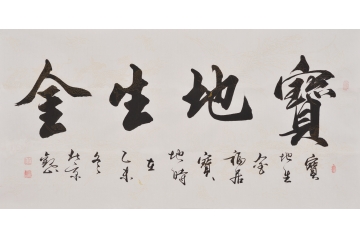 寶地生金
寶
地生
金
福居
寶
地時
在
乙未
冬
於京